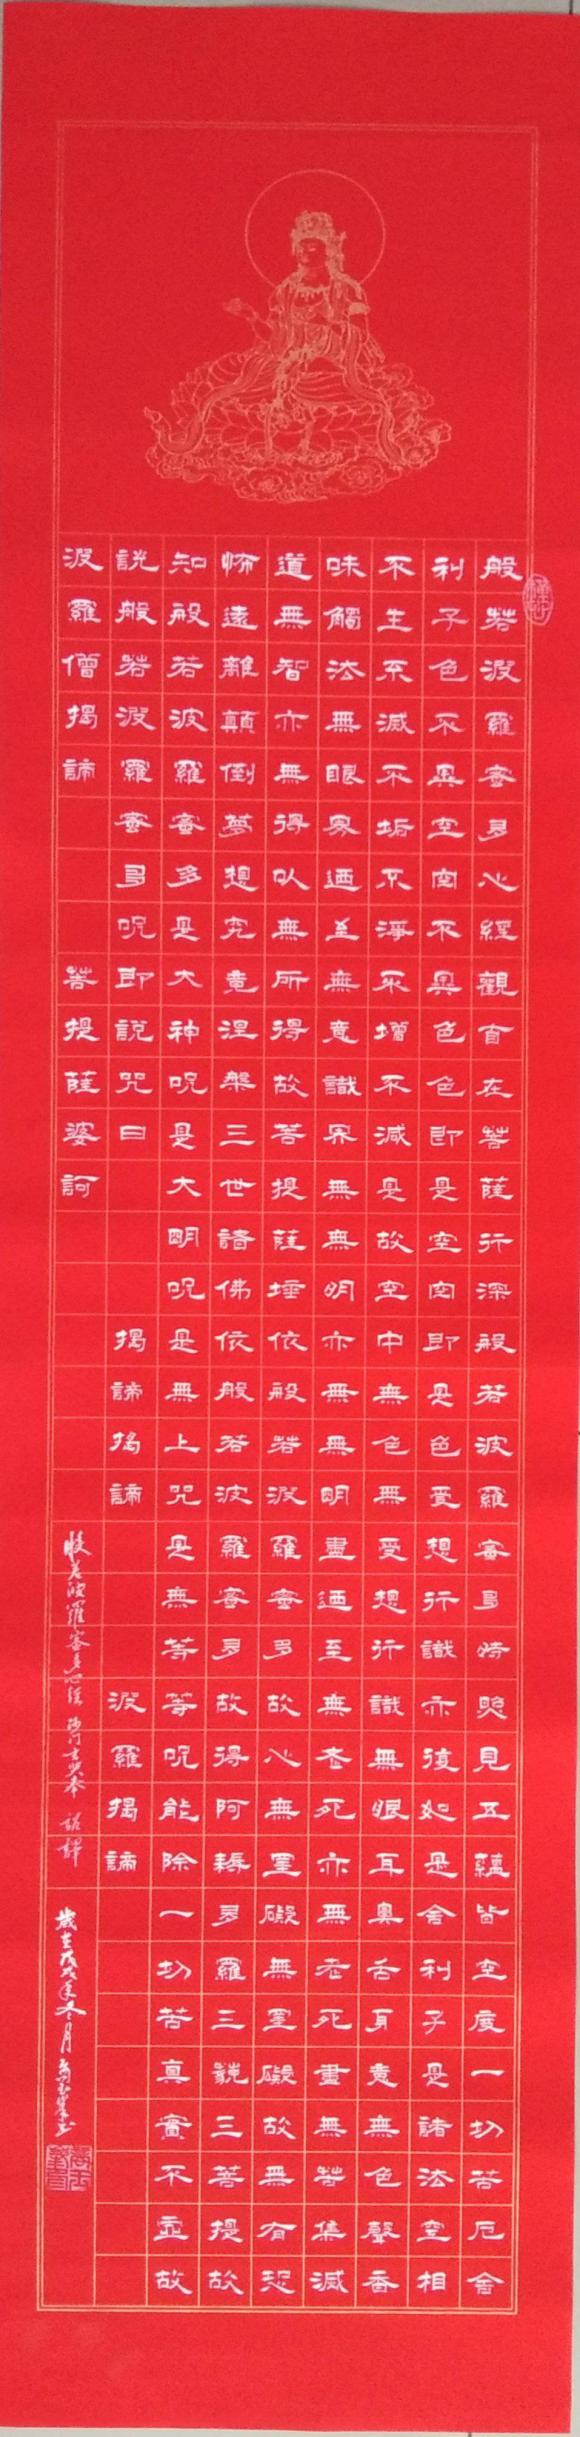 般若波羅蜜多心經觀自在菩薩行深般若波羅蜜多時照見五蘊皆空度一切苦厄舍
利子色不異空空不異色色即是空空即是色受想行識亦復如是舍利子是諸法空相
不生不滅不垢不淨不增不減是故空中無色無受想行識無眼耳鼻舌身意無色聲香
味觸法無眼界迺至無意識界無無明亦無無明盡迺至無老死亦無老死盡無苦集滅
道無智亦無得以無所得故菩提薩埵依般若波羅蜜多故心無罣礙無罣礙故無有恐
怖遠離顛倒夢想究竟涅槃三世諸佛依般若波羅蜜多故得阿耨多羅三藐三菩提故
知般若波羅蜜多是大神呪是大明呪是無上咒是無等等呪能除一切苦真實不虛故
說般若波羅蜜多呪即說咒曰 揭諦揭諦 波羅揭諦
波羅僧揭諦 菩提薩婆訶
般若波羅蜜多心經 沙門玄奘奉 詔譯
歲在戊戌年冬月